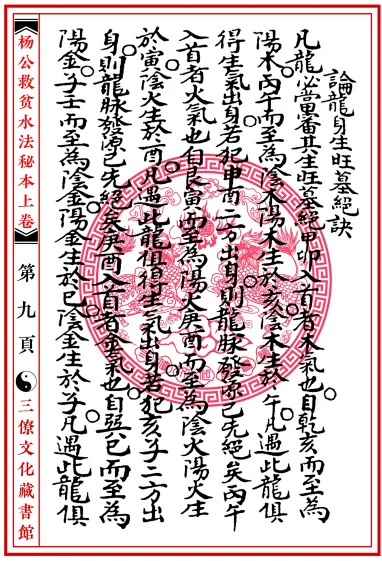 論龍身生旺墓絕訣
凡龍必當審其生旺墓絕甲卯入首者木氣也自乾亥而至為
陽木丙午而至為陰木陽木生於亥陰木生於午凡遇此龍俱
得生氣出身若犯申酉二方出身則龍脉發源已先絕矣丙午
入首者火氣也自艮寅而至為陽火庚酉而至為陰火陽火生
於寅陰火生於酉凡遇此龍俱得生氣出身若犯亥子二方出
身則龍脉發源已先絕矣庚酉入首者金氣也自巽巳而至為
陽金子壬而至為陰金陽金生於巳陰金生於子凡遇此龍俱
杨公救贫水法秘本上卷
第九頁
三僚文化藏書館